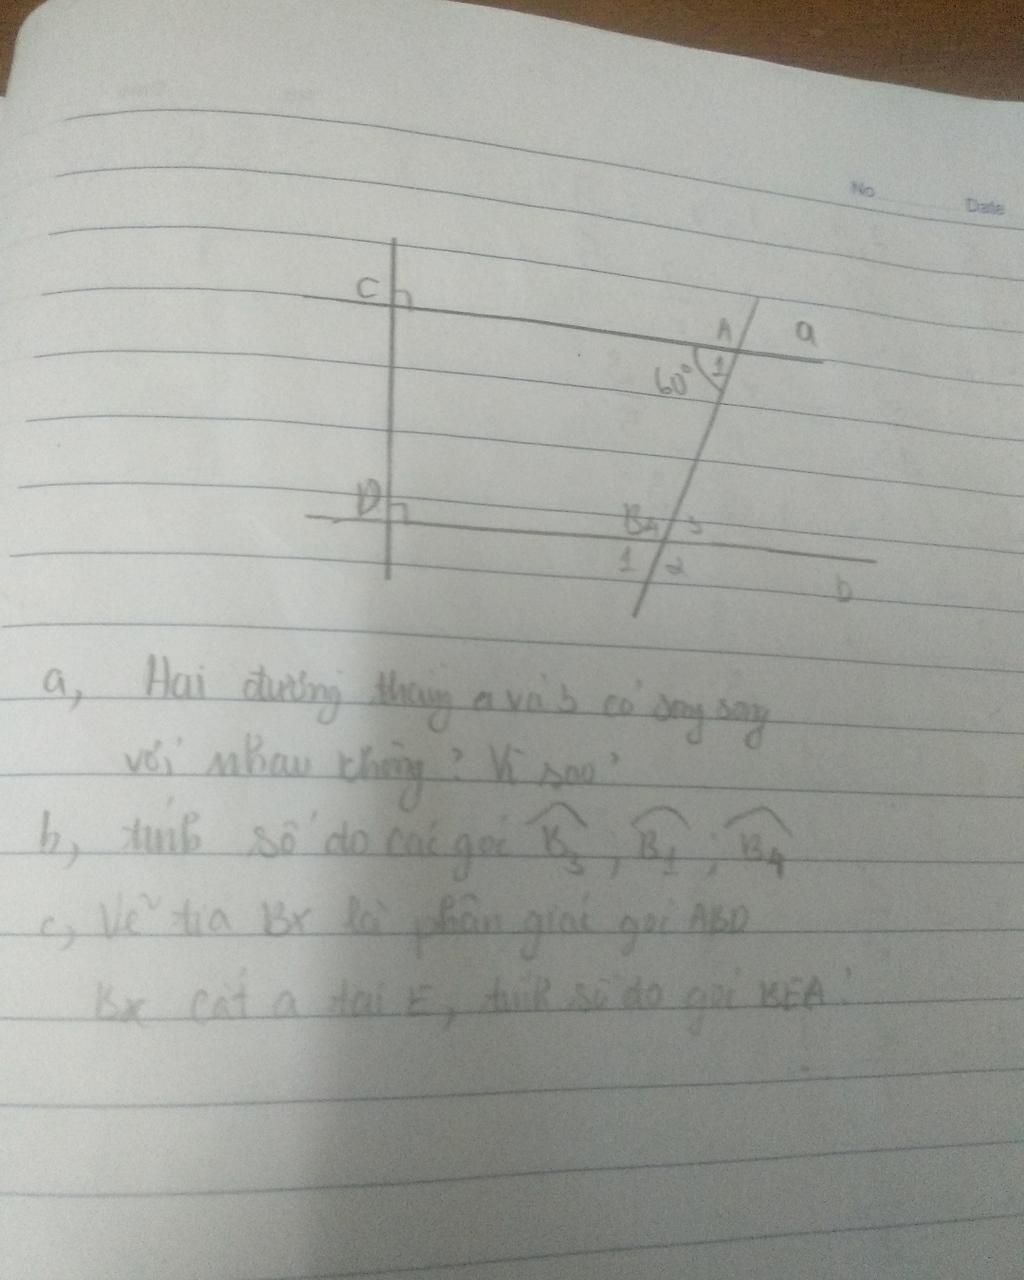 No
Date
C
A
a
60° 1
D
B4 3
1 2
b
a, Hai đường thẳng a và b có song song
với nhau không? Vì sao?
b, tính số đo các góc B3; B1; B4
c, Vẽ tia Bx là phân giác góc ABD
Bx cắt a tại E, tính số đo góc BEA?